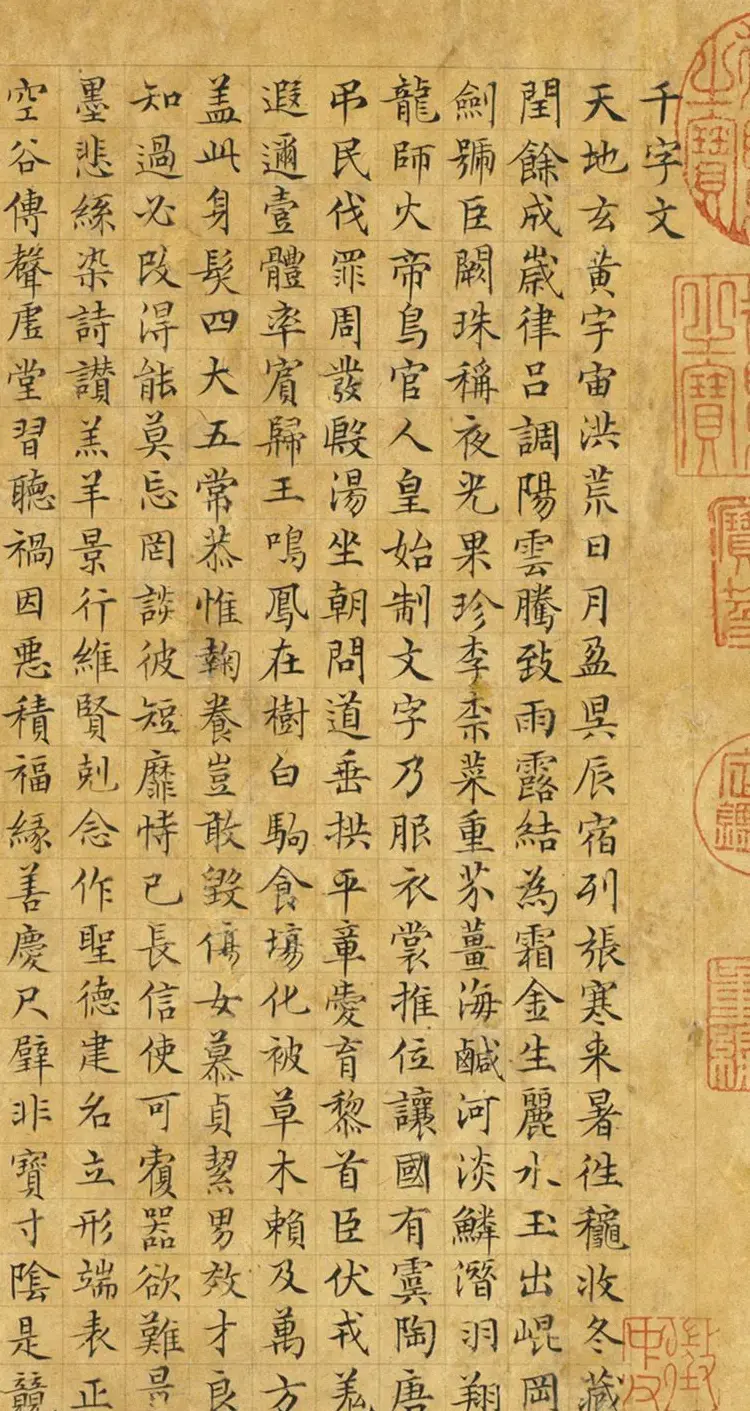 千字文
天地玄黄宇宙洪荒日月盈昃辰宿列張寒来暑往穐收冬藏
閏餘成歲律呂調陽雲騰致雨露結為霜金生麗水玉出崐岡
劍號臣闕珠稱夜光果珍李柰菜重芥薑海鹹河淡鱗潛羽翔
龍師火帝鳥官人皇始制文字乃服衣裳推位讓國有虞陶唐
吊民伐罪周發殷湯坐朝問道垂拱平章愛育黎首臣伏戎羌
遐邇壹體率賓歸王鳴鳳在樹白駒食場化被草木賴及萬方
盖此身髮四大五常恭惟鞠養豈敢毀傷女慕貞絜男效才良
知過必改得能莫忘罔談彼短靡恃己長信使可覆器欲難量
墨悲絲染詩讚羔羊景行維賢剋念作聖德建名立形端表正
空谷傳聲虛堂習聽禍因惡積福緣善慶尺璧非寶寸陰是競